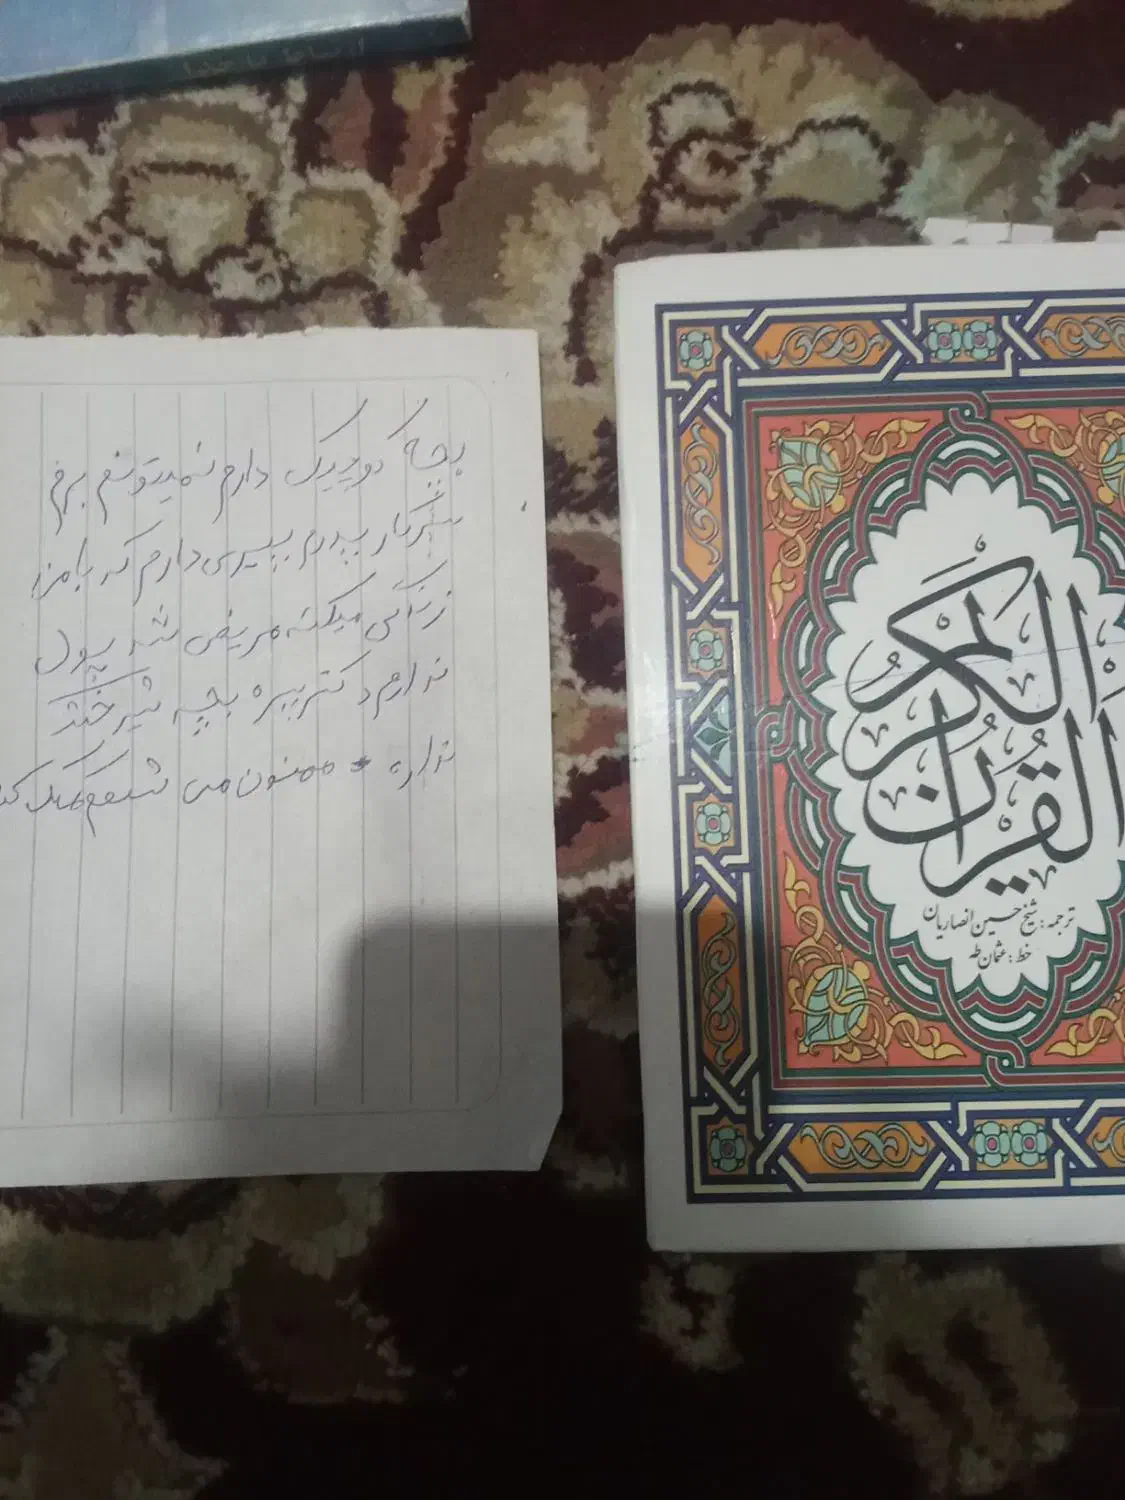 بچه کوچیک دارم نمیتونم برم
سرکار پدرم پیری دارم که با من
زندگی میکنه مریض شده پول
ندارم دکتر ببره بچه شیر خشک
نداره ممنون می شم کمک کنید
القرآن الكريم
ترجمه: شیخ حسین انصاریان
خط: عثمان طه